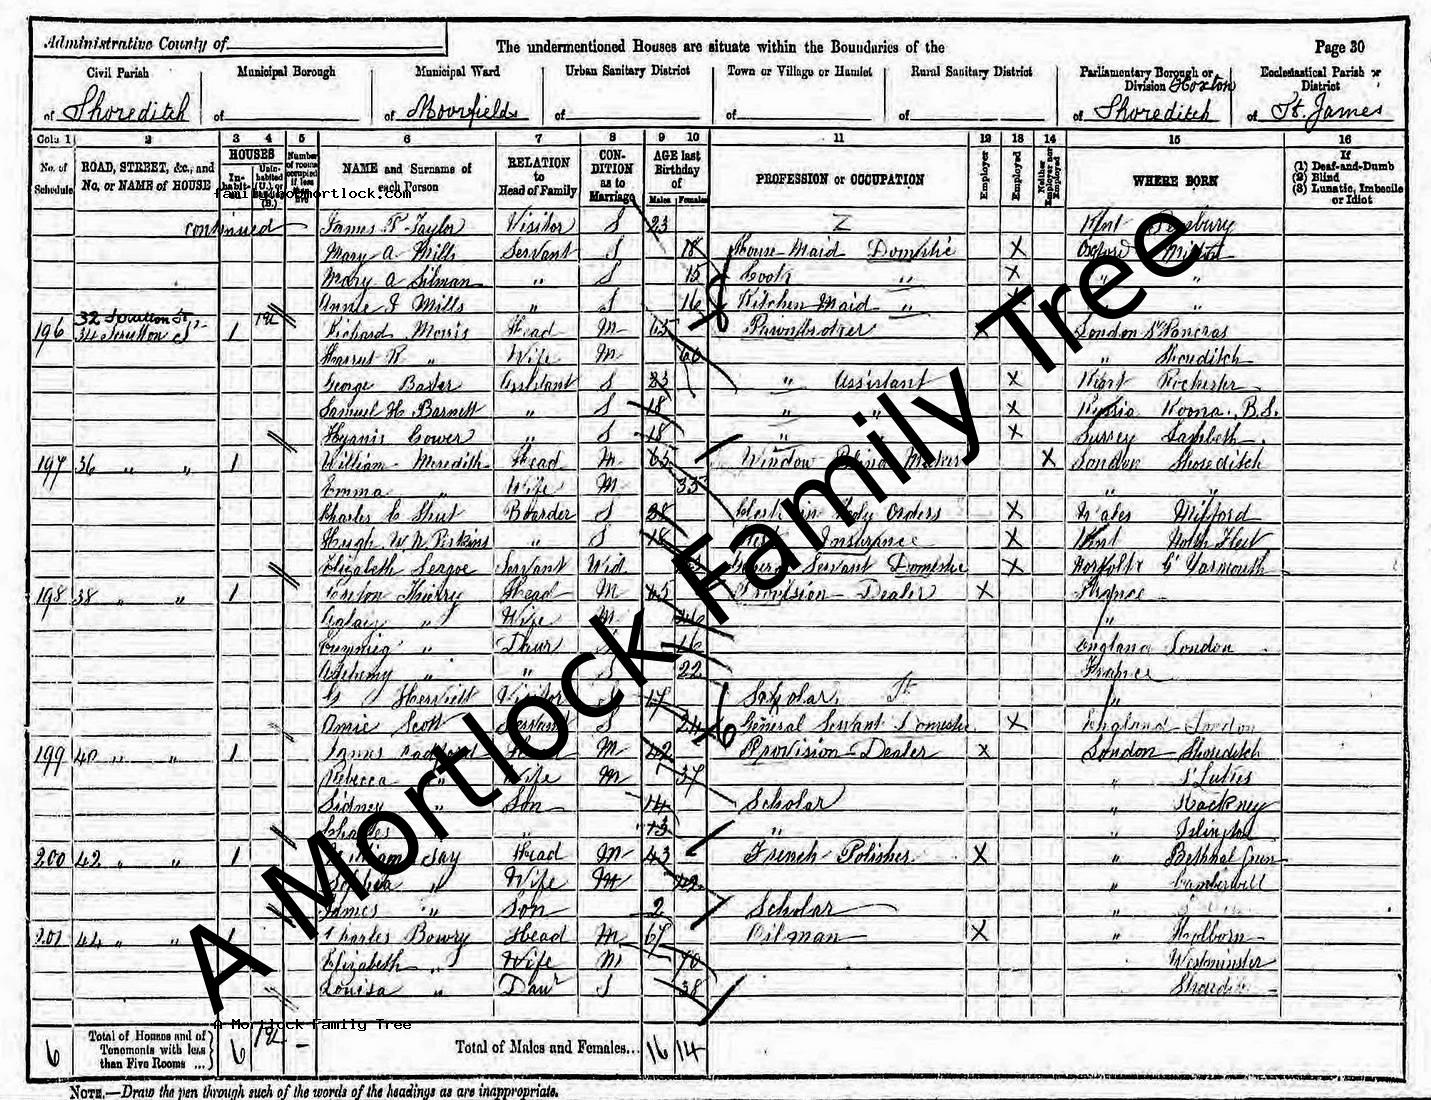 Administrative County of
The undermentioned Houses are situate within the Boundaries of the
Page 30
Civil Parish of Shoreditch
Municipal Borough of
Municipal Ward of Moorfields
Urban Sanitary District of
Town or Village or Hamlet of
Rural Sanitary District of
Parliamentary Borough or Division of Hoxton Shoreditch
Ecclesiastical Parish or District of St. James
Cols 1 2 3 4 5 6 7 8 9 10 11 12 13 14 15 16
No. of Schedule
ROAD, STREET, &c., and No. or NAME of HOUSE
HOUSES
In-habit-ed
Unin-habited (U.) or Building (B.)
Number of rooms occupied if less than five
NAME and Surname of each Person
RELATION to Head of Family
CON-DITION as to Marriage
AGE last Birthday of
Males Females
PROFESSION or OCCUPATION
Employer
Employed
Neither Employer nor Employed
WHERE BORN
If (1) Deaf-and-Dumb (2) Blind (3) Lunatic, Imbecile or Idiot
familyphotmortlock.com
continued James T Taylor Visitor S 23 Kent
Mary A Mills Servant S 18 House Maid Domestic X Oxford Milton
Mary A Silman " S 15 Cook " X " "
Annie J Mills " S 16 Kitchen Maid " X "
32 Scrutton St
196 34 Scrutton St 1 Richard Morris Head M 65 Pawnbroker X London St Pancras
Harriet R " Wife M 60 " Shoreditch
George Baxter Assistant S 23 " Assistant X Kent Rochester
Samuel H Barnett " S 18 " " X Russia B.S.
Gower " S 18 " X Surrey Lambeth
197 36 " " 1 William Meredith Head M 65 Window Blind Maker X London Shoreditch
Emma " Wife M 35 " "
Charles C Boarder S 28 Clerk in Orders X Wales Milford
Hugh W N Perkins " S 18 Insurance X Kent North Fleet
Elizabeth Servant Wid General Servant Domestic X Norfolk Gt Yarmouth
198 38 " " 1 Head M 45 Provision Dealer X France
" Wife M 46 "
" Daur 16 England London
" " S 22 France
Visitor 17 Scholar "
Annie Scott Servant S 24 General Servant Domestic X England London
199 40 " " 1 James Head M 42 Provision Dealer X London Shoreditch
Rebecca " Wife M 37 " St Lukes
Sidney " Son 14 Scholar " Hackney
Charles " " 13 " " Islington
200 42 " " 1 William Say Head M 43 French Polisher X " Bethnal Green
Sophia " Wife M 42 " Camberwell
James " Son 2 Scholar "
201 44 " " 1 Charles Bowry Head M 67 Oilman X " Holborn
Elizabeth " Wife M 70 " Westminster
Louisa " Daur S 38
A Mortlock Family Tree
A Mortlock Family Tree
6 Total of Houses and of Tenements with less than Five Rooms ... 6 Total of Males and Females... 16 14
NOTE.—Draw the pen through such of the words of the headings as are inappropriate.